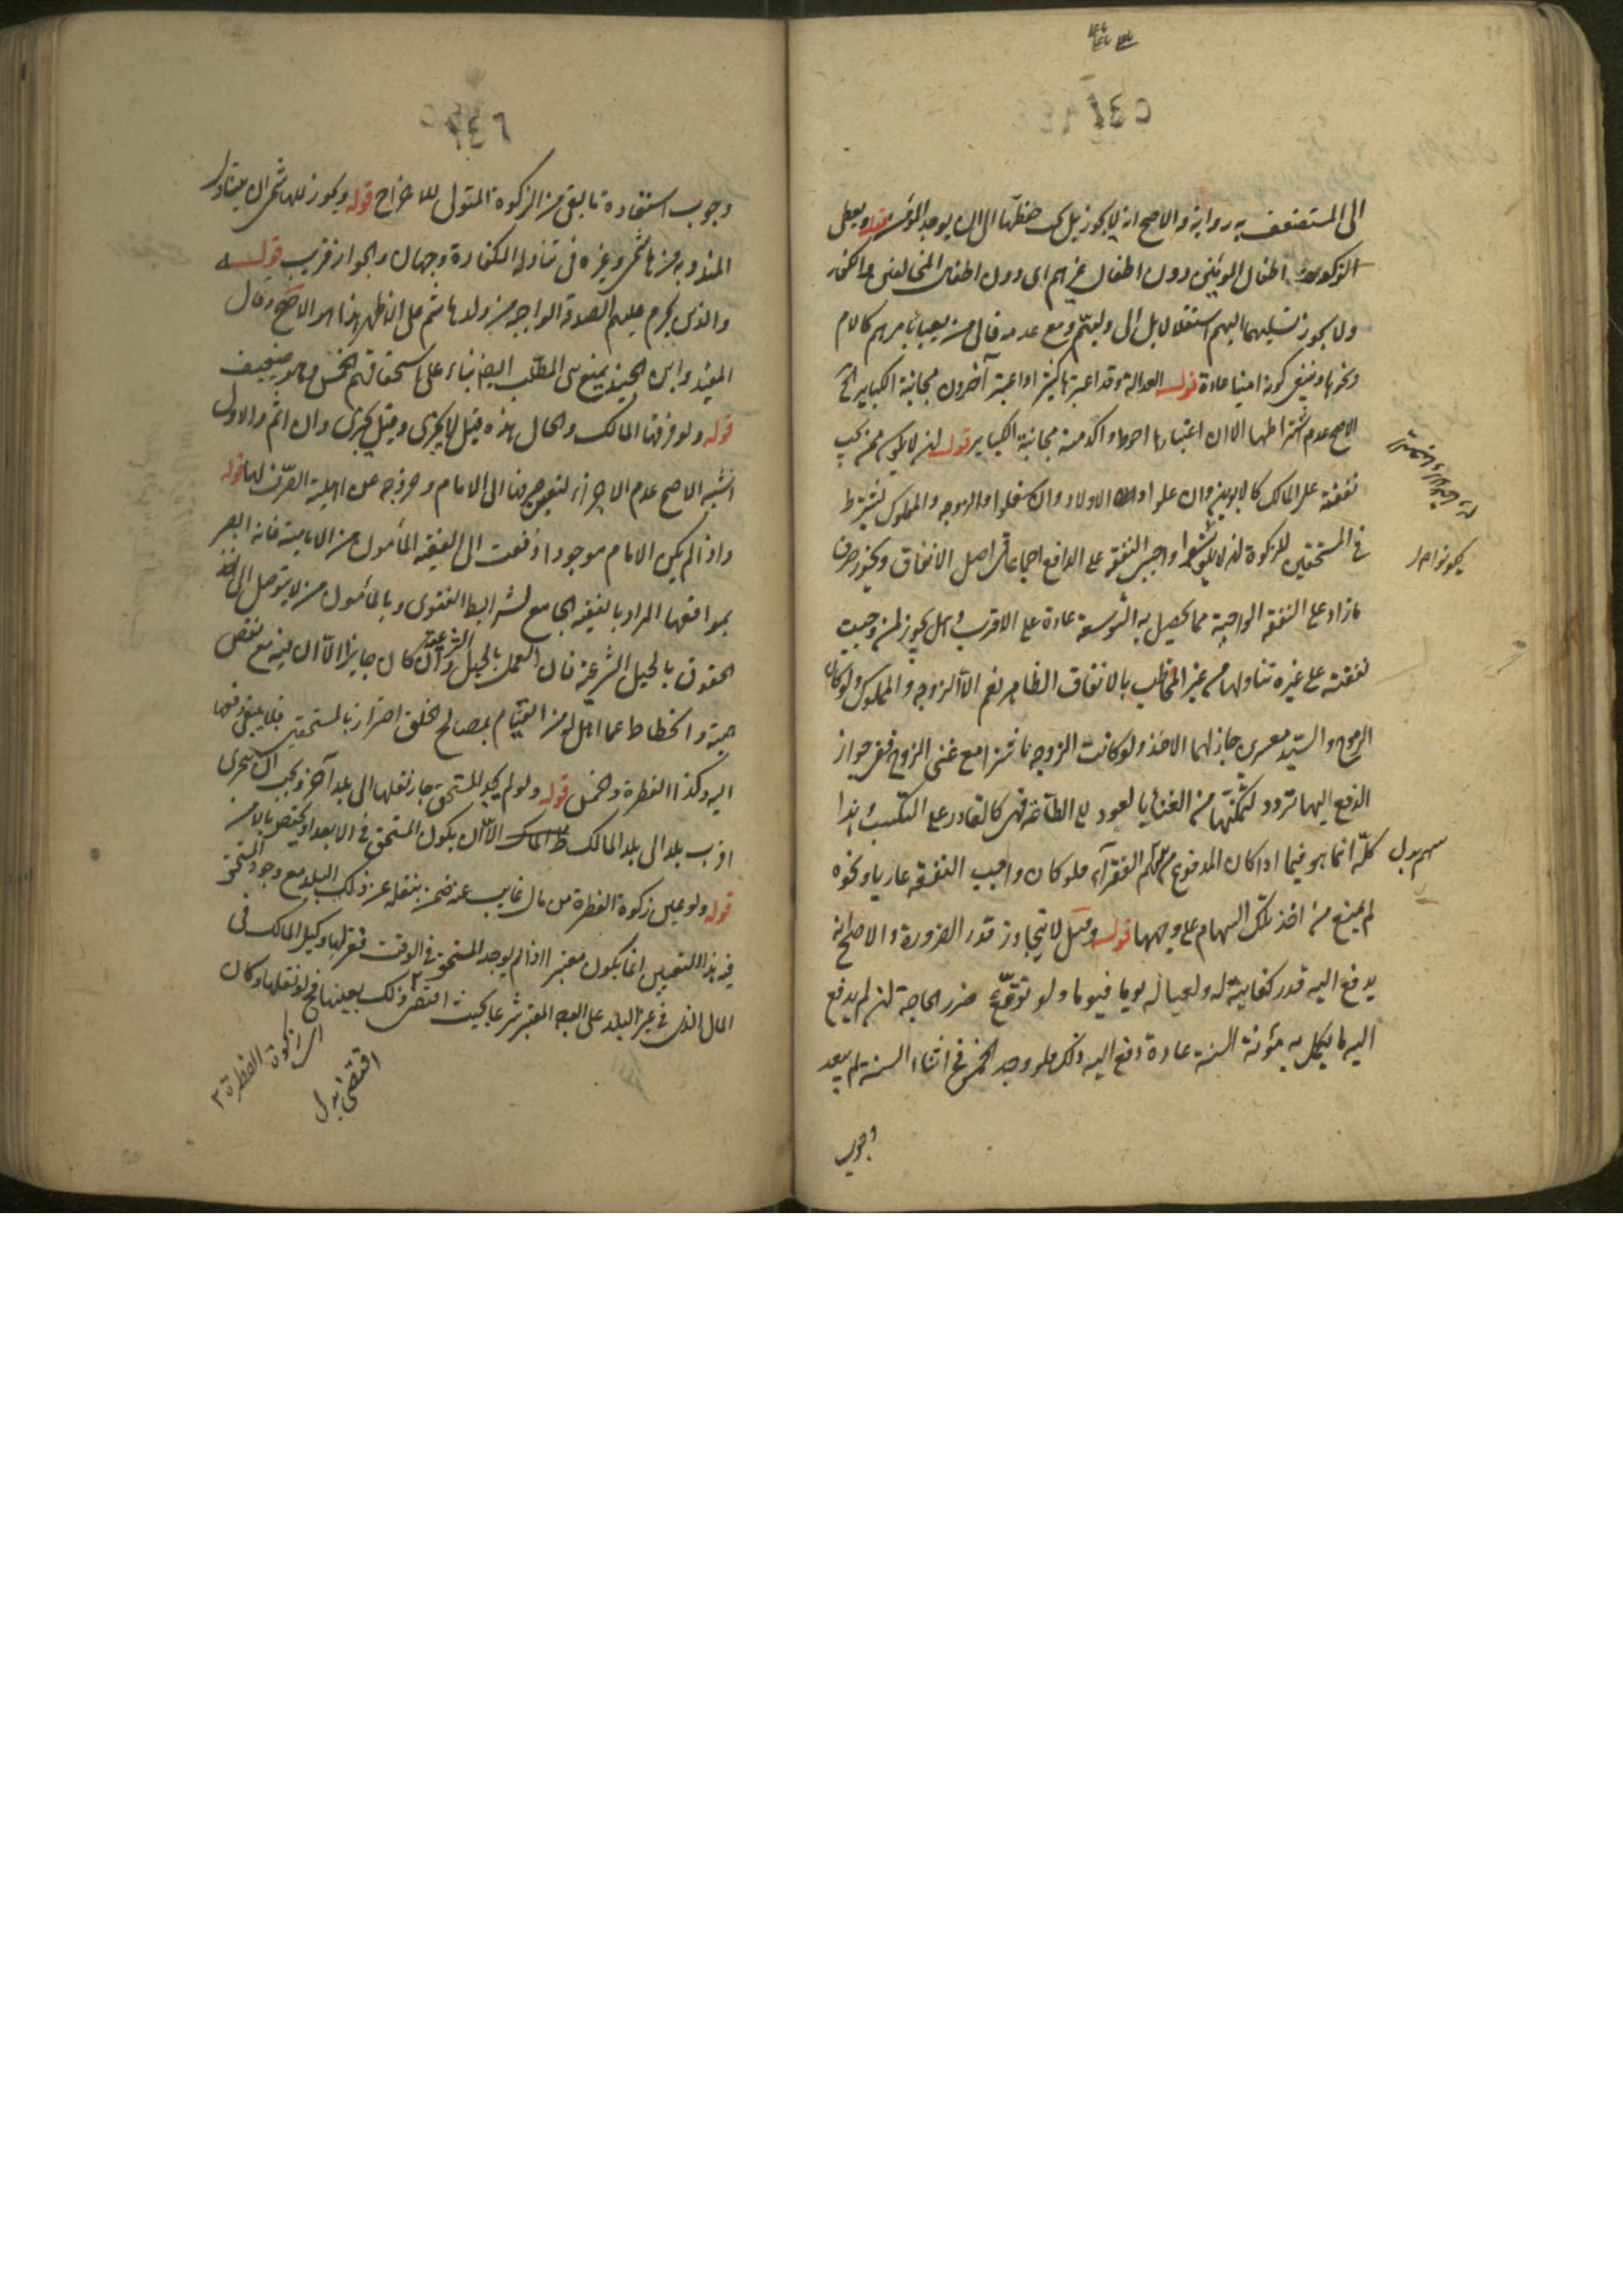 الى المستضعف به رواية والاصح انه لا يجوز بل يجب حفظها الى ان يوجد المؤمن قوله ويعطى
الزكوة اطفال المومنين دون اطفال غيرهم اى دون اطفال المخالفين والكفار
ولا يجوز تسليمها اليهم استقلالا بل الى وليهم ومع عدمه فالى من يعبأ بامرهم كالام
ونحوها وينبغى كونه امينا عادة قوله العدالة وقد اعتبرها كثير واعتبر آخرون مجانبة الكباير الخ
الاصح عدم اشتراطها الا ان اعتبارها احوط واكد منه مجانبة الكباير قوله ان لا يكون ممن يجب
نفقته على المالك كالابوين وان علوا والاولاد وان سفلوا والزوجه والمملوك يشترط
فى المستحقين للزكوة ان لا يكونوا واجبى النفقه على الدافع اجماعا فى اصل الانفاق ويجوز صرف
ما زاد على النفقه الواجبة مما يحصل به التوسعة عادة على الاقرب وهل يجوز لمن وجبت
نفقته على غيره تناولها من غير المخاطب بالانفاق الظاهر نعم الا الزوجه والمملوك ولو كان
الزوج والسيد معسرين جاز لهما الاخذ ولو كانت الزوجه ناشزا مع غنى الزوج ففى جواز
الدفع اليها تردد لتمكنها من الغنى بالعود الى الطاعة فهى كالقادر على التكسب هذا
كله انما هو فيما اذا كان المدفوع من سهم الفقرآء فلو كان واجب النفقه غازيا ونحوه
سهم بدل
لم يمنع من اخذ تلك السهام على وجهها قوله وقيل لا يتجاوز قدر الضرورة والاصح انه
يدفع اليه قدر كفايته له ولعياله يوما فيوما ولو توقع ضرر الحاجة ان لم يدفع
اليه ما يكمل به مؤنة السنة عادة دفع اليه ذلك فلو وجد الخمس فى اثناء السنة لم يبعد
يكونوا صل
وجوب
وجوب استعادة ما بقى من الزكوة المتول للاخراج قوله ويجوز للهاشمى ان يتناول
المندوبه من هاشمى وغيره فى تناوله الكفارة وجهان والجواز قريب قوله
والذين يحرم عليهم الصدقة الواجبه من ولد هاشم على الاظهر هذا هو الاصح وقال
المفيد وابن الجنيد يمنع بنى المطلب ايضا بناء على استحقاقهم الخمس وهو ضعيف
قوله ولو فرقها المالك والحال هذه قيل لا يجزى وقيل يجزى وان اثم والاول
اشبه الاصح عدم الاجزاء لتعين صرفها الى الامام وخروجه عن اهلية التصرف لها قوله
واذا لم يكن الامام موجودا دفعت الى الفقيه المأمون من الامامية فانه ابصر
بمواقعها المراد بالفقيه الجامع لشرايط الفتوى وبالمأمون من لا يتوصل الى اخذ
الحقوق بالحيل الشرعية فان العمل بالحيل الشرعية وان كان جايزا الا ان فيه مع نقص
همة وانحطاط عما اهل له من القيام بمصالح الخلق اضرار بالمستحقين فلا ينبغى دفعها
اليه وكذا الفطرة والخمس قوله ولو لم يجد المستحق جاز نقلها الى بلد آخر ويجب ان يتحرى
اقرب بلد الى بلد المالك الا ان يكون المستحق فى الابعد او يختص بالامن
قوله ولو عين زكوة الفطرة من مال غايب عنه ضمن بنقله عن ذلك البلد مع وجود المستحق
فيه هذا التعيين انما يكون معتبرا اذا لم يوجد المستحق فى الوقت فعزلها وكيل المالك فى
المال الذى فى غير البلد على الوجه المعتبر شرعا بحيث اقتضى ذلك بعينها فح لو نقلها وكان
اى زكوة الفطرة ٣
اقتضى بدل